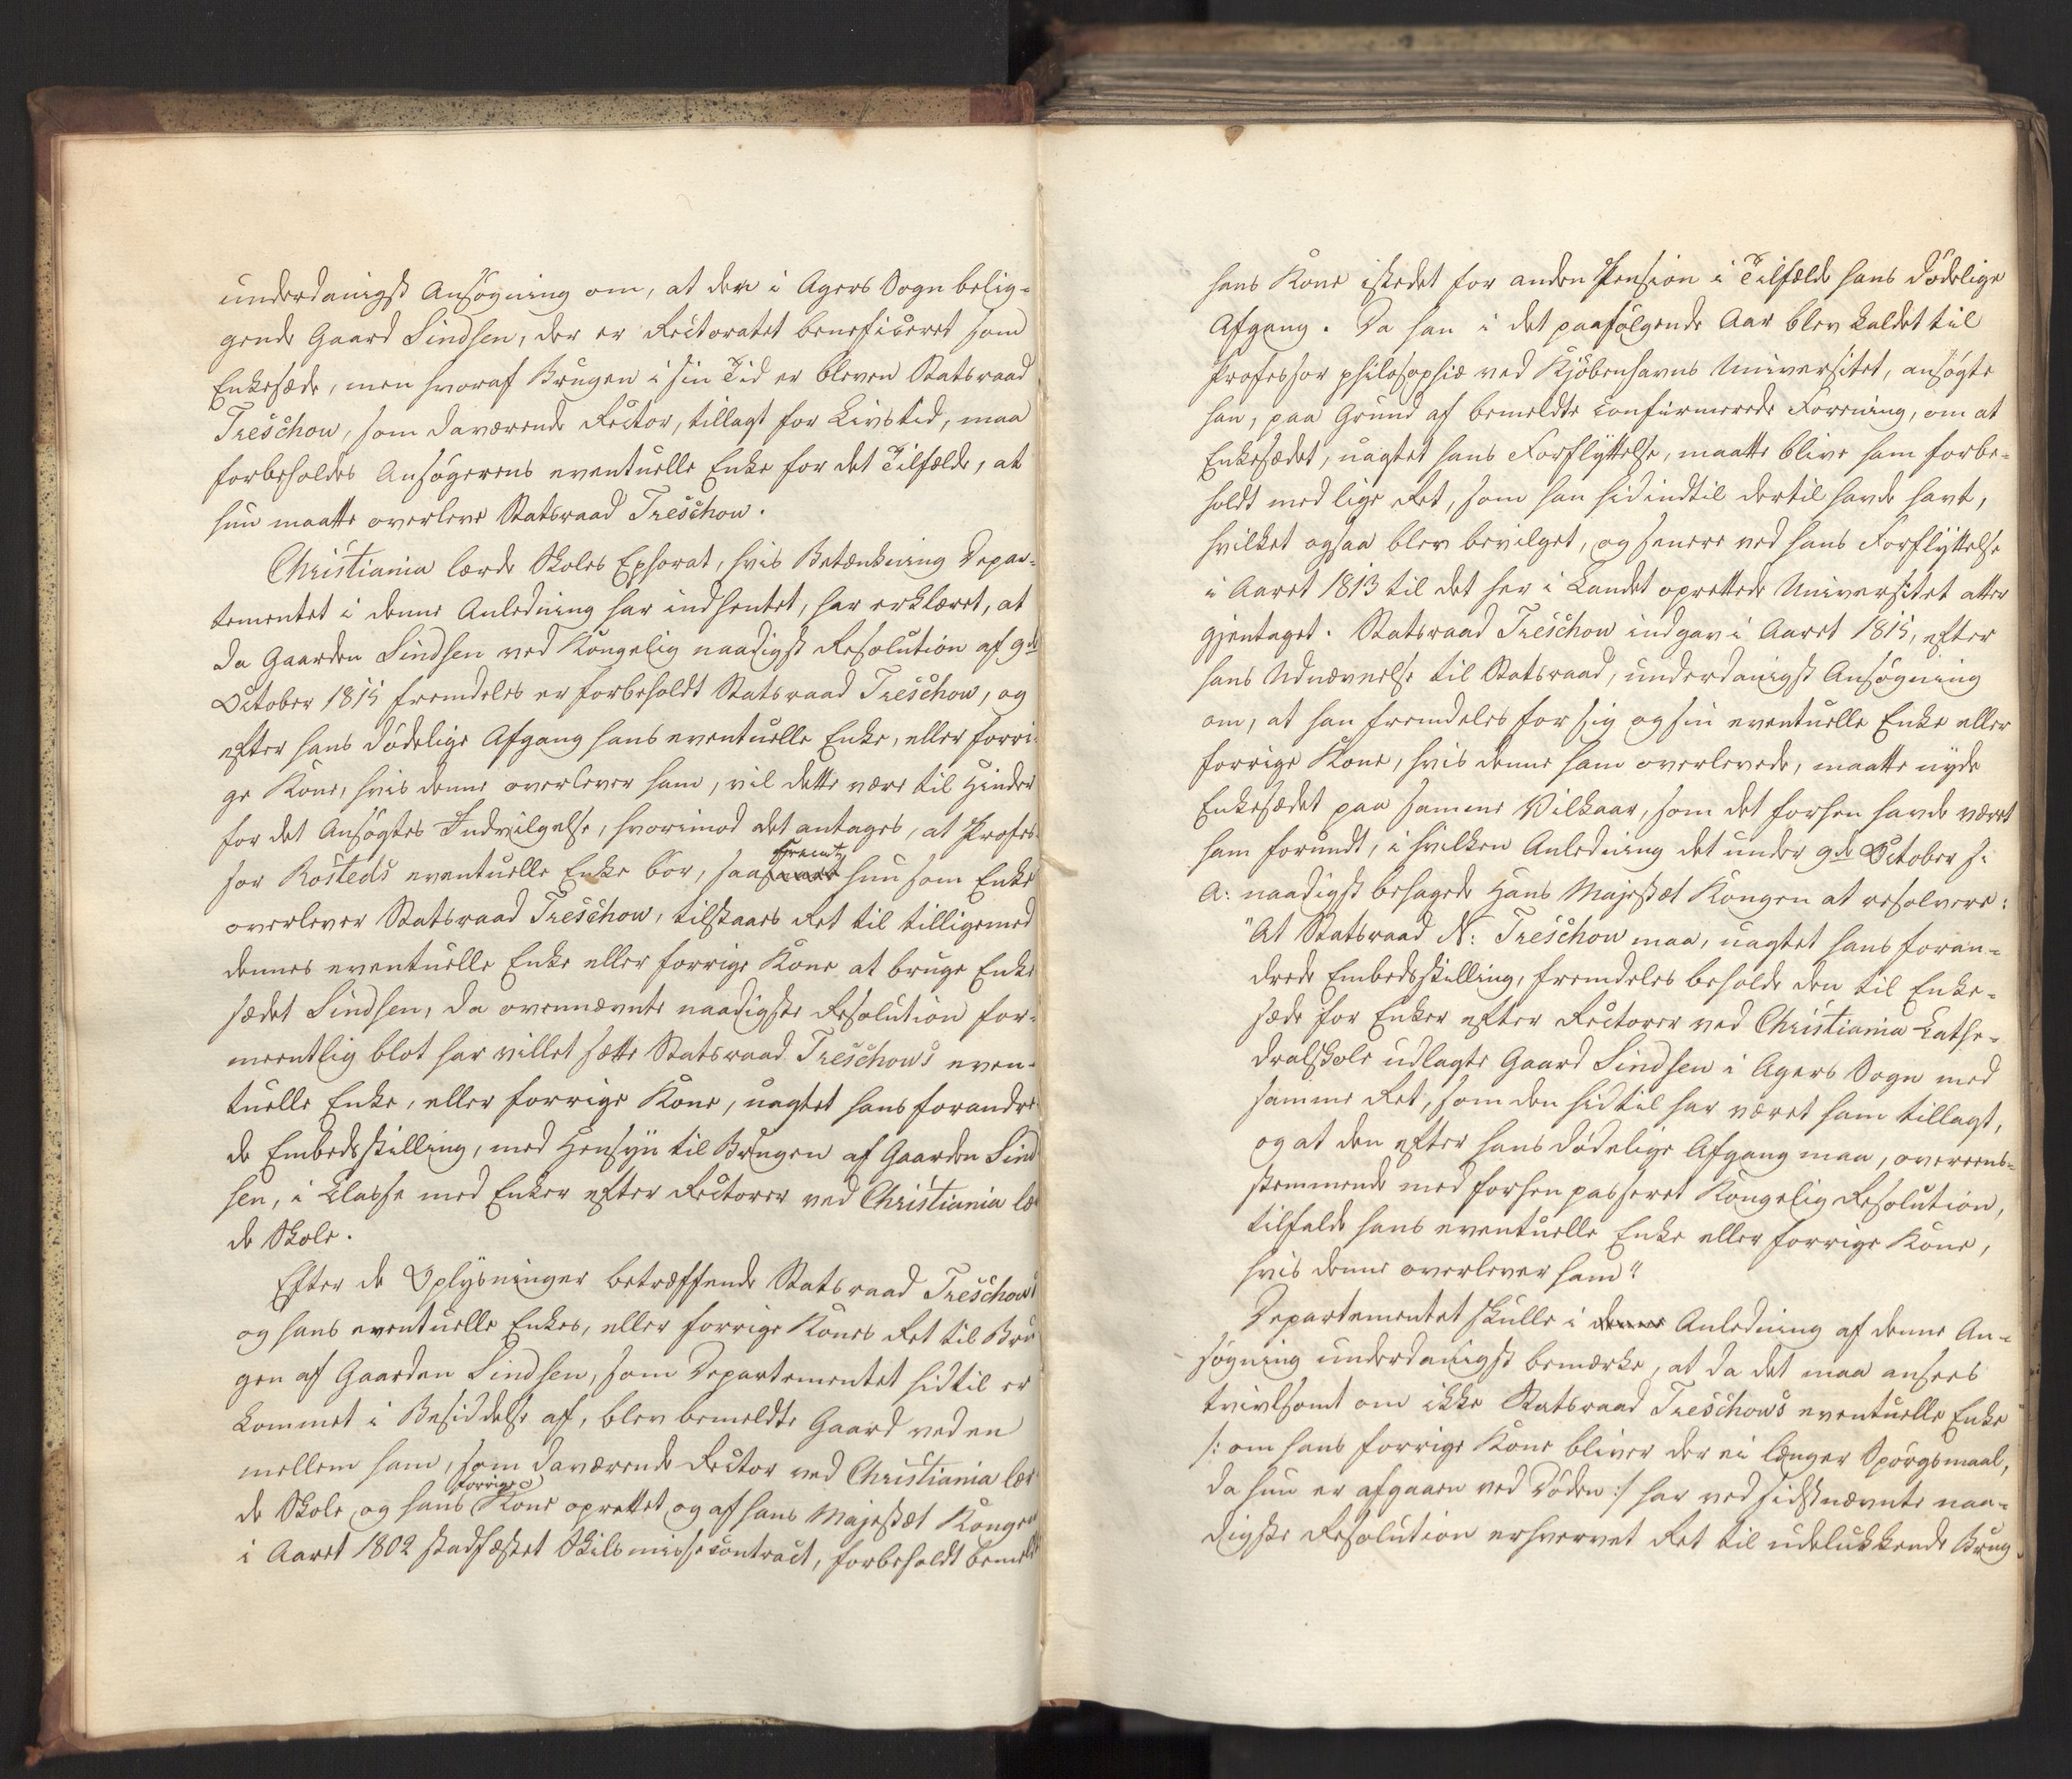 underdanigst Ansøgning om, at den i Agers Sogn belig-
gende Gaard Sindsen, der er Rectoratet beneficeret som
Enkesæde, men hvoraf Brugen i sin Tid er bleven Statsraad
Treschow, som daværende Rector, tillagt for Livstid, maa
forbeholdes Ansøgerens eventuelle Enke for det Tilfælde, at
hun maatte overleve Statsraad Treschow.
Christiania lærde Skoles Ephorat, hvis Betænkning Depar-
tementet i denne Anledning har indhentet, har erklæret, at
da Gaarden Sindsen ved Kongelig naadigst Resolution af 9de
October 1815 fremdeles er forbeholdt Statsraad Treschow, og
efter hans dødelige Afgang hans eventuelle Enke, eller forri-
ge Kone, hvis denne overlever ham, vil dette være til Hinder
for det Ansøgtes Indvilgelse, hvorimod det antages, at Profes-
sor Rosteds eventuelle Enke bør, saafremt hun som Enke
overlever Statsraad Treschow, tilstaaes Ret til tilligemed
dennes eventuelle Enke eller forrige Kone at bruge Enke
sædet Sindsen, da ovennævnte naadigste Resolution for-
meentlig blot har villet sætte Statsraad Treschows even-
tuelle Enke, eller forrige Kone, uagtet hans forandre
de Embedsstilling, med Hensyn til Brugen af Gaarden Sind
sen, i Classe med Enker efter Rectorer ved Christiania lær
de Skole.
Efter de Oplysninger betræffende Statsraad Treschows
og hans eventuelle Enkes, eller forrige Kones Ret til Bru
gen af Gaarden Sindsen, som Departementet hidtil er
kommet i Besiddelse af, blev bemeldte Gaard ved en
mellem ham, som daværende Rector ved Christiania lær
de Skole og hans forrige Kone oprettet og af hans Majestæt Kongen
i Aaret 1802 stadfæstet Skilsmissecontract, forbeholdt bemeldte
hans Kone istedet for anden Pension i Tilfælde hans dødelige
Afgang. Da han i det paafølgende Aar blev kaldet til
Professor philosophiæ ved Kjøbenhavns Universitet, ansøgte
han, paa Grund af bemeldte confirmerede Forening, om at
Enkesædet, uagtet hans Forflyttelse, maatte blive ham forbe-
holdt med lige Ret, som han hidindtil dertil havde havt,
hvilket ogsaa blev bevilget, og senere ved hans Forflyttelse
i Aaret 1813 til det her i Landet oprettede Universitet atter
gjentaget. Statsraad Treschow indgav i Aaret 1815, efter
hans Udnævnelse til Statsraad, underdanigst Ansøgning
om, at han fremdeles for sig og sin eventuelle Enke eller
forrige Kone, hvis denne ham overlevede, maatte nyde
Enkesædet paa samme Vilkaar, som det forhen havde været
ham forundt, i hvilken Anledning det under 9de October s:
A: naadigst behagede Hans Majestæt Kongen at resolvere:
"At Statsraad N: Treschow maa, uagtet hans foran-
drede Embedsstilling, fremdeles beholde den til Enke-
sæde for Enker efter Rectorer ved Christiania Cathe-
dralskole udlagte Gaard Sindsen i Agers Sogn med
samme Ret, som den hidtil har været ham tillagt,
og at den efter hans dødelige Afgang maa, overeens-
stemmende med forhen passeret Kongelig Resolution,
tilfalde hans eventuelle Enke eller forrige Kone,
hvis denne overlever ham"
Departementet skulle i denne Anledning af denne An-
søgning underdanigst bemærke, at da det maa ansees
tvivlsomt om ikke Statsraad Treschows eventuelle Enke
/: om hans forrige Kone bliver der ei længer Spørgsmaal,
da hun er afgaaen ved Døden :/ har ved sidstnævnte naa-
digste Resolution erhvervet Ret til udelukkende Brug